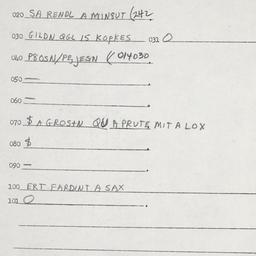 020 SA RENDL A MINSUT (242
030 GILDN QGL 15 KOPKES 032 0
040 P8OSN/PFJESN (014030
050 —
060 —
070 $ A GROSTN QU A PRUTS MIT A LOX
080 $
090 —
100 ERT FARDINT A SAX
102 0